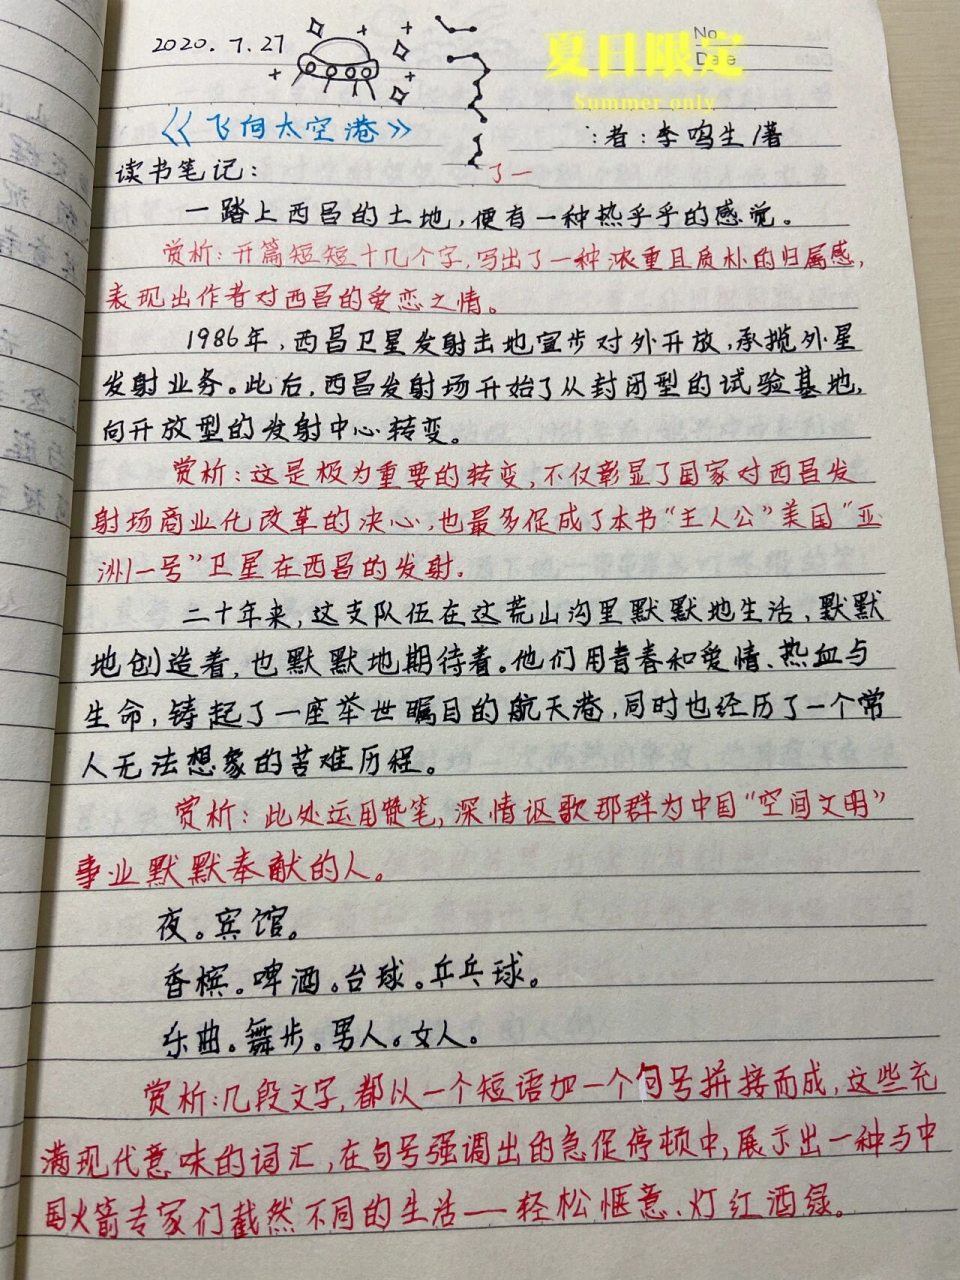 2020.7.27
夏日限定
Summer only
No
Date
《飞向太空港》
者:李鸣生/著
读书笔记:
了一
一踏上西昌的土地,便有一种热乎乎的感觉。
赏析:开篇短短十几个字,写出了一种浓重且质朴的归属感,
表现出作者对西昌的爱恋之情。
1986年,西昌卫星发射击地宣步对外开放,承揽外星
发射业务。此后,西昌发射场开始了从封闭型的试验基地,
向开放型的发射中心转变。
赏析:这是极为重要的转变,不仅彰显了国家对西昌发
射场商业化改革的决心,也最多促成了本书“主人公”美国“亚
洲一号”卫星在西昌的发射.
二十年来,这支队伍在这荒山沟里默默地生活,默默
地创造着,也默默地期待着。他们用青春和爱情、热血与
生命,铸起了一座举世瞩目的航天港,同时也经历了一个常
人无法想象的苦难历程。
赏析:此处运用赞笔,深情讴歌那群为中国“空间文明”
事业默默奉献的人。
夜。宾馆。
香槟。啤酒。台球。乒乓球。
乐曲。舞步。男人。女人。
赏析:几段文字,都以一个短语加一个句号拼接而成,这些充
满现代意味的词汇,在句号强调出的急促停顿中,展示出一种与中
国火箭专家们截然不同的生活——轻松惬意、灯红酒绿。